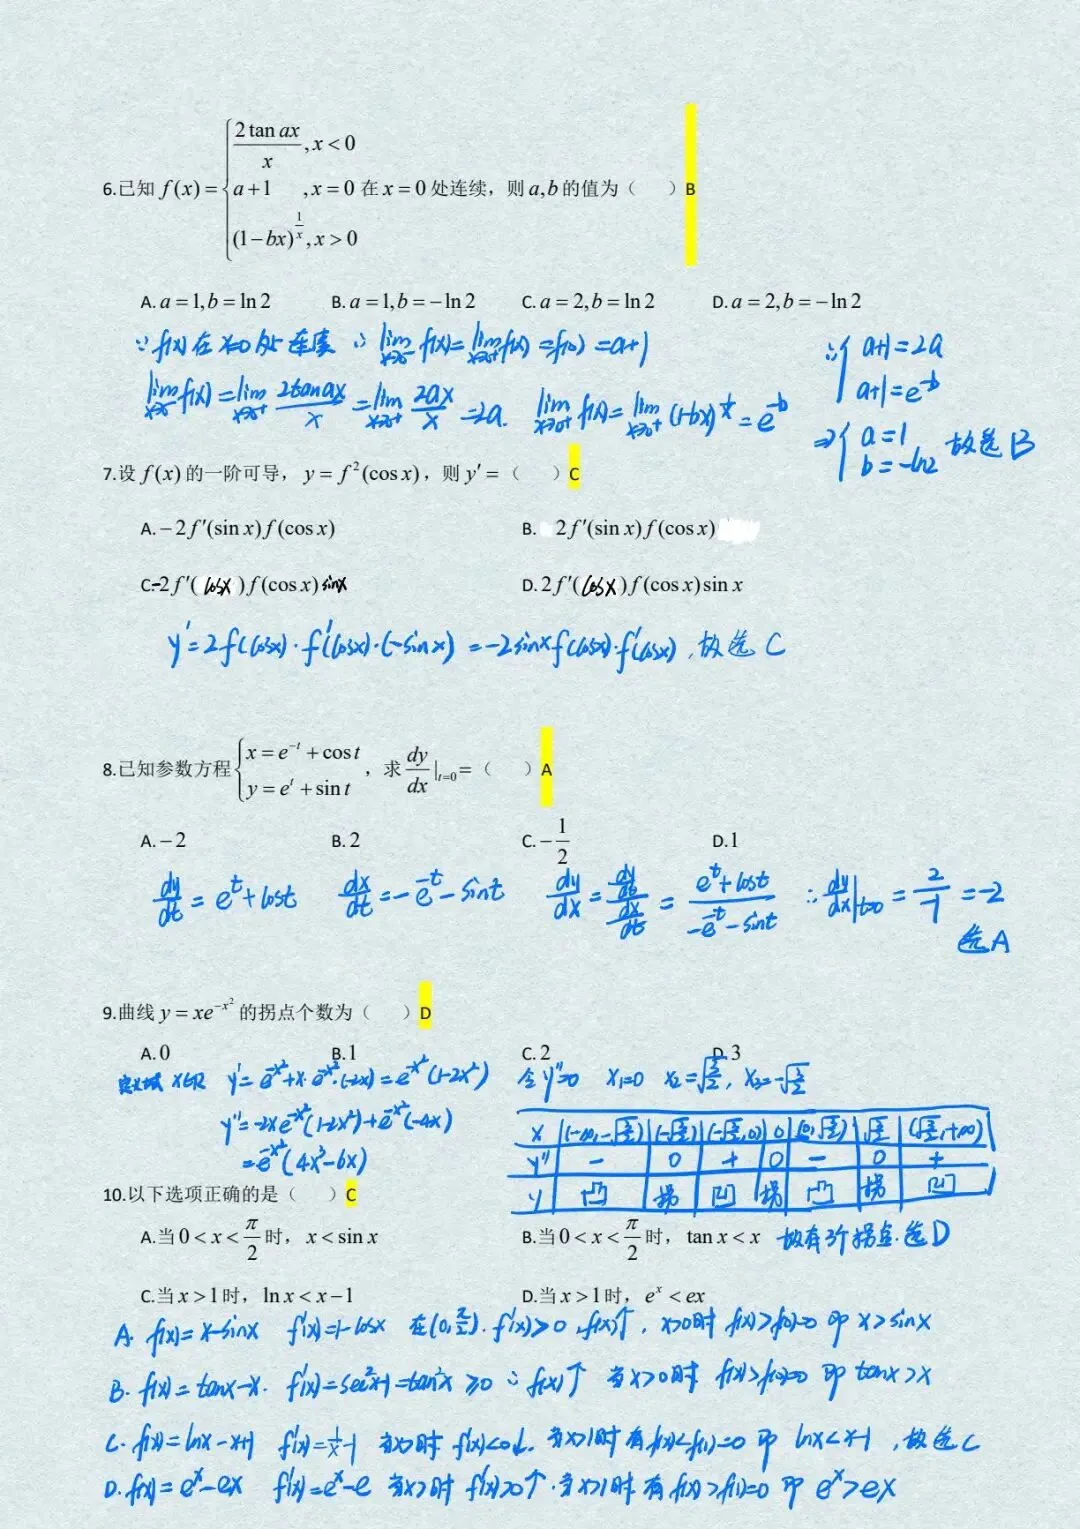 6.已知 f(x) = { 2 tan ax / x , x < 0
a+1 , x = 0 在 x = 0 处连续，则 a,b 的值为（ ）B
(1−bx)^{1/x} , x > 0
A. a = 1, b = ln 2 B. a = 1, b = −ln 2 C. a = 2, b = ln 2 D. a = 2, b = −ln 2
∵ f(x) 在 x=0 处连续 ∴ lim_{x→0⁻} f(x) = lim_{x→0⁺} f(x) = f(0) = a+1
∴ { a+1=2a
a+1=e^{-b}
lim_{x→0⁻} f(x) = lim_{x→0⁺} 2tanax / x = lim_{x→0⁺} 2ax / x = 2a. lim_{x→0⁺} f(x) = lim_{x→0⁺} (1-bx)^{1/x} = e^{-b}
⇒ { a=1
b=-ln2 故选B
7.设 f(x) 的一阶可导，y = f²(cos x)，则 y′ =（ ）C
A. −2f′(sin x)f(cos x) B. 2f′(sin x)f(cos x)
C. -2f′(cosx)f(cos x)sinx D. 2f′(cosx)f(cos x)sin x
y′=2f(cosx)·f′(cosx)·(-sinx) = -2sinxf(cosx)·f′(cosx), 故选 C
8.已知参数方程 { x = e^{−t} + cos t
y = e^{t} + sin t ，求 dy/dx |_{t=0} =（ ）A
A. −2 B. 2 C. −1/2 D. 1
dy/dt = e^t+cost dx/dt = -e^{-t}-sint dy/dx = (dy/dt)/(dx/dt) = (e^t+cost)/(-e^{-t}-sint) ∴ dy/dx|_{t=0} = 2/-1 = -2
选A
9.曲线 y = xe^{−x²} 的拐点个数为（ ）D
A. 0 B. 1 C. 2 D. 3
定义域 x∈R y′=e^{-x²}+x·e^{-x²}·(-2x)=e^{-x²}(1-2x²) 令y″=0 x₁=0 x₂=√(3/2), x₃=-√(3/2)
y″=-2xe^{-x²}(1-2x²)+e^{-x²}(-4x)
=e^{-x²}(4x³-6x)
x | (-∞,-√(3/2)) | (-√(3/2)) | (-√(3/2),0) | 0 | (0,√(3/2)) | √(3/2) | (√(3/2),+∞)
y″ | - | 0 | + | 0 | - | 0 | +
y | 凸 | 拐 | 凹 | 拐 | 凸 | 拐 | 凹
故有3个拐点.选D
10.以下选项正确的是（ ）C
A.当 0 < x < π/2 时，x < sin x B.当 0 < x < π/2 时，tan x < x
C.当 x > 1 时，ln x < x − 1 D.当 x > 1 时，e^x < ex
A. f(x)=x-sinx f′(x)=1-cosx 在(0,π/2). f′(x)>0, f(x)↑, x>0时 f(x)>f(0)=0 即 x>sinx
B. f(x)=tanx-x. f′(x)=sec²x-1=tan²x ≥0 ∴ f(x)↑ 当x>0时 f(x)>f(0)=0 即 tanx>x
C. f(x)=lnx-x+1 f′(x)=1/x-1 当x>1时 f′(x)<0↓. 当x>1时 有f(x)<f(1)=0 即 lnx<x-1, 故选C
D. f(x)=e^x-ex f′(x)=e^x-e 当x>1时 f′(x)>0↑. 当x>1时 有f(x)>f(1)=0 即 e^x>ex